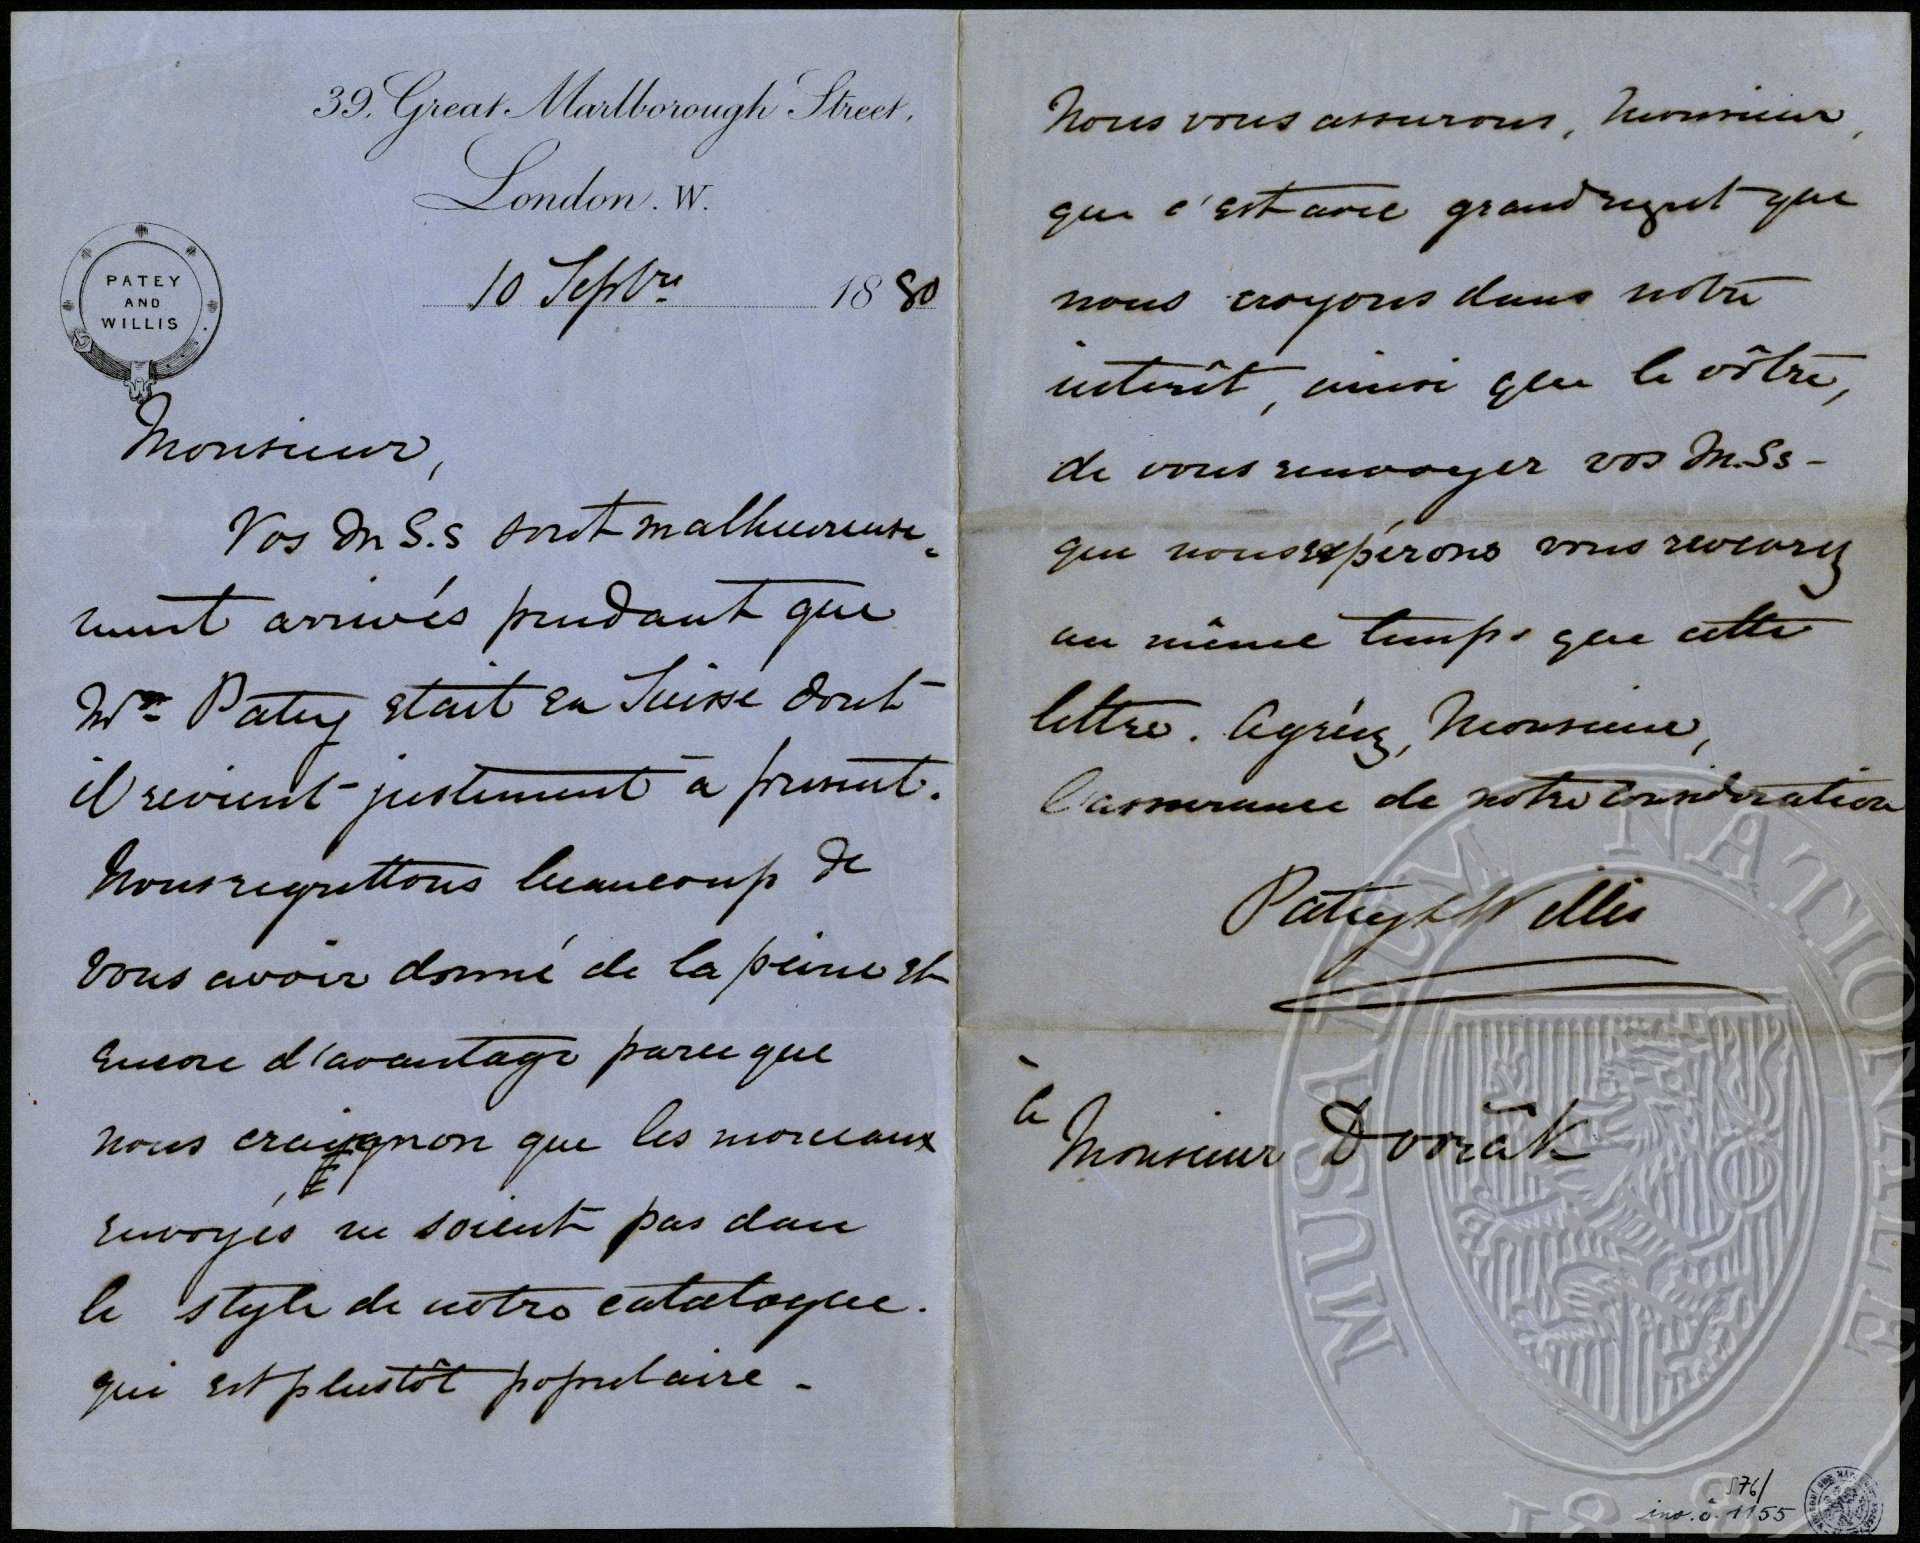 39, Great Marlborough Street,
London. W.
PATEY
AND
WILLIS
10 Septbre 1880
Monsieur,
Vos M S.s sont malheureuse-
ment arrivés pendant que
Mr Patey etait en Suisse dont
il revient justement à present.
Nous regrettons beaucoup de
vous avoir donné de la peine et
encore d'avantage parce que
nous craignon que les morceaux
envoyés ne soient pas dans
le style de notre catalogue.
qui est plustôt populaire -
Nous vous assurons, Monsieur,
que c'est avec grand regret que
nous croyons dans notre
interêt, ainsi que le vôtre,
de vous renvoyer vos M.Ss -
que nous espérons vous recevrez
au même temps que cette
lettre. Agréez, Monsieur,
l'assurance de notre consideration
Patey & Willis
à
Monsieur Dvořák
MUSAEUM NATIONALE
1818
576/
inv. č. 1155